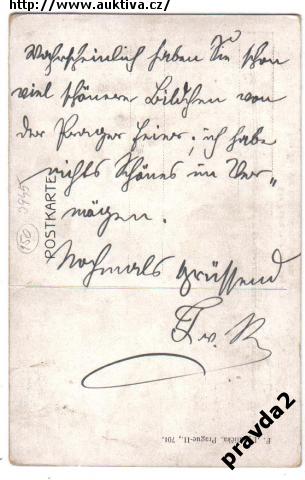 http://www.auktiva.cz/
Wahrscheinlich haben Sie schon
viel schönere Bildchen von
der Prager Feier; ich habe
nichts Schönes im Ver-
mögen.
Nochmals grüssend
Fr. R
POSTKARTE
Prague-II., 701.
pravda2